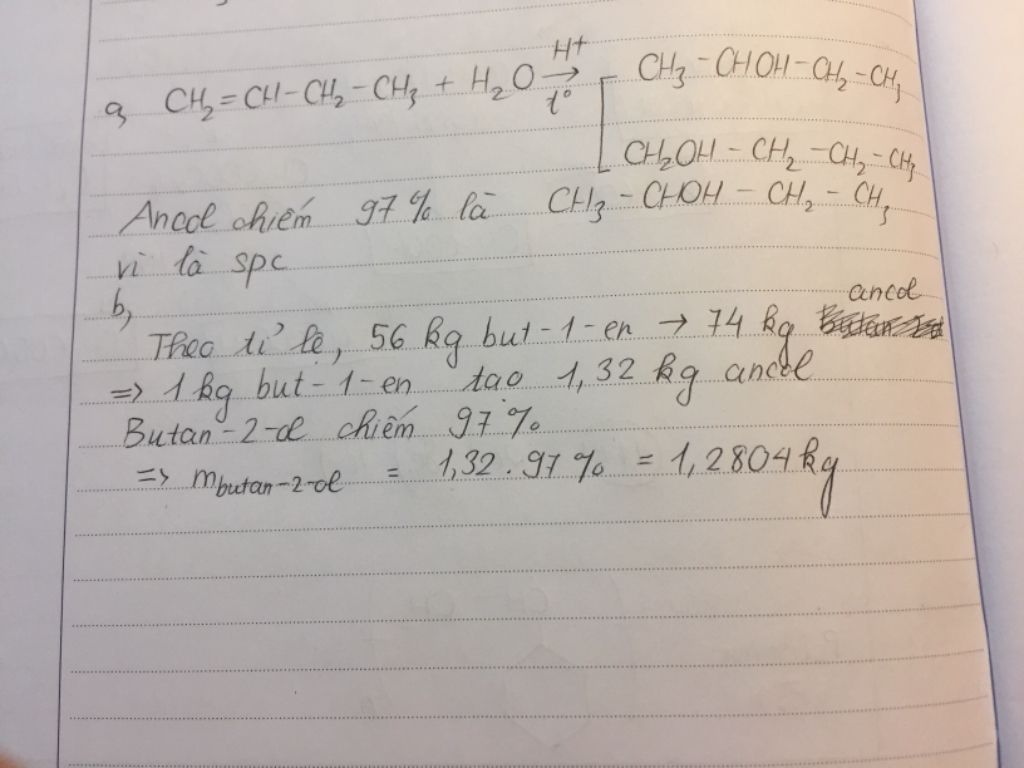 a, CH2=CH-CH2-CH3 + H2O →(H+, t°) [ CH3-CHOH-CH2-CH3
CH2OH-CH2-CH2-CH3
Ancol chiếm 97% là CH3-CHOH-CH2-CH3
vì là spc
b,
Theo tỉ lệ, 56 kg but-1-en → 74 kg ancol
=> 1 kg but-1-en tạo 1,32 kg ancol
Butan-2-ol chiếm 97%
=> mbutan-2-ol = 1,32.97% = 1,2804 kg